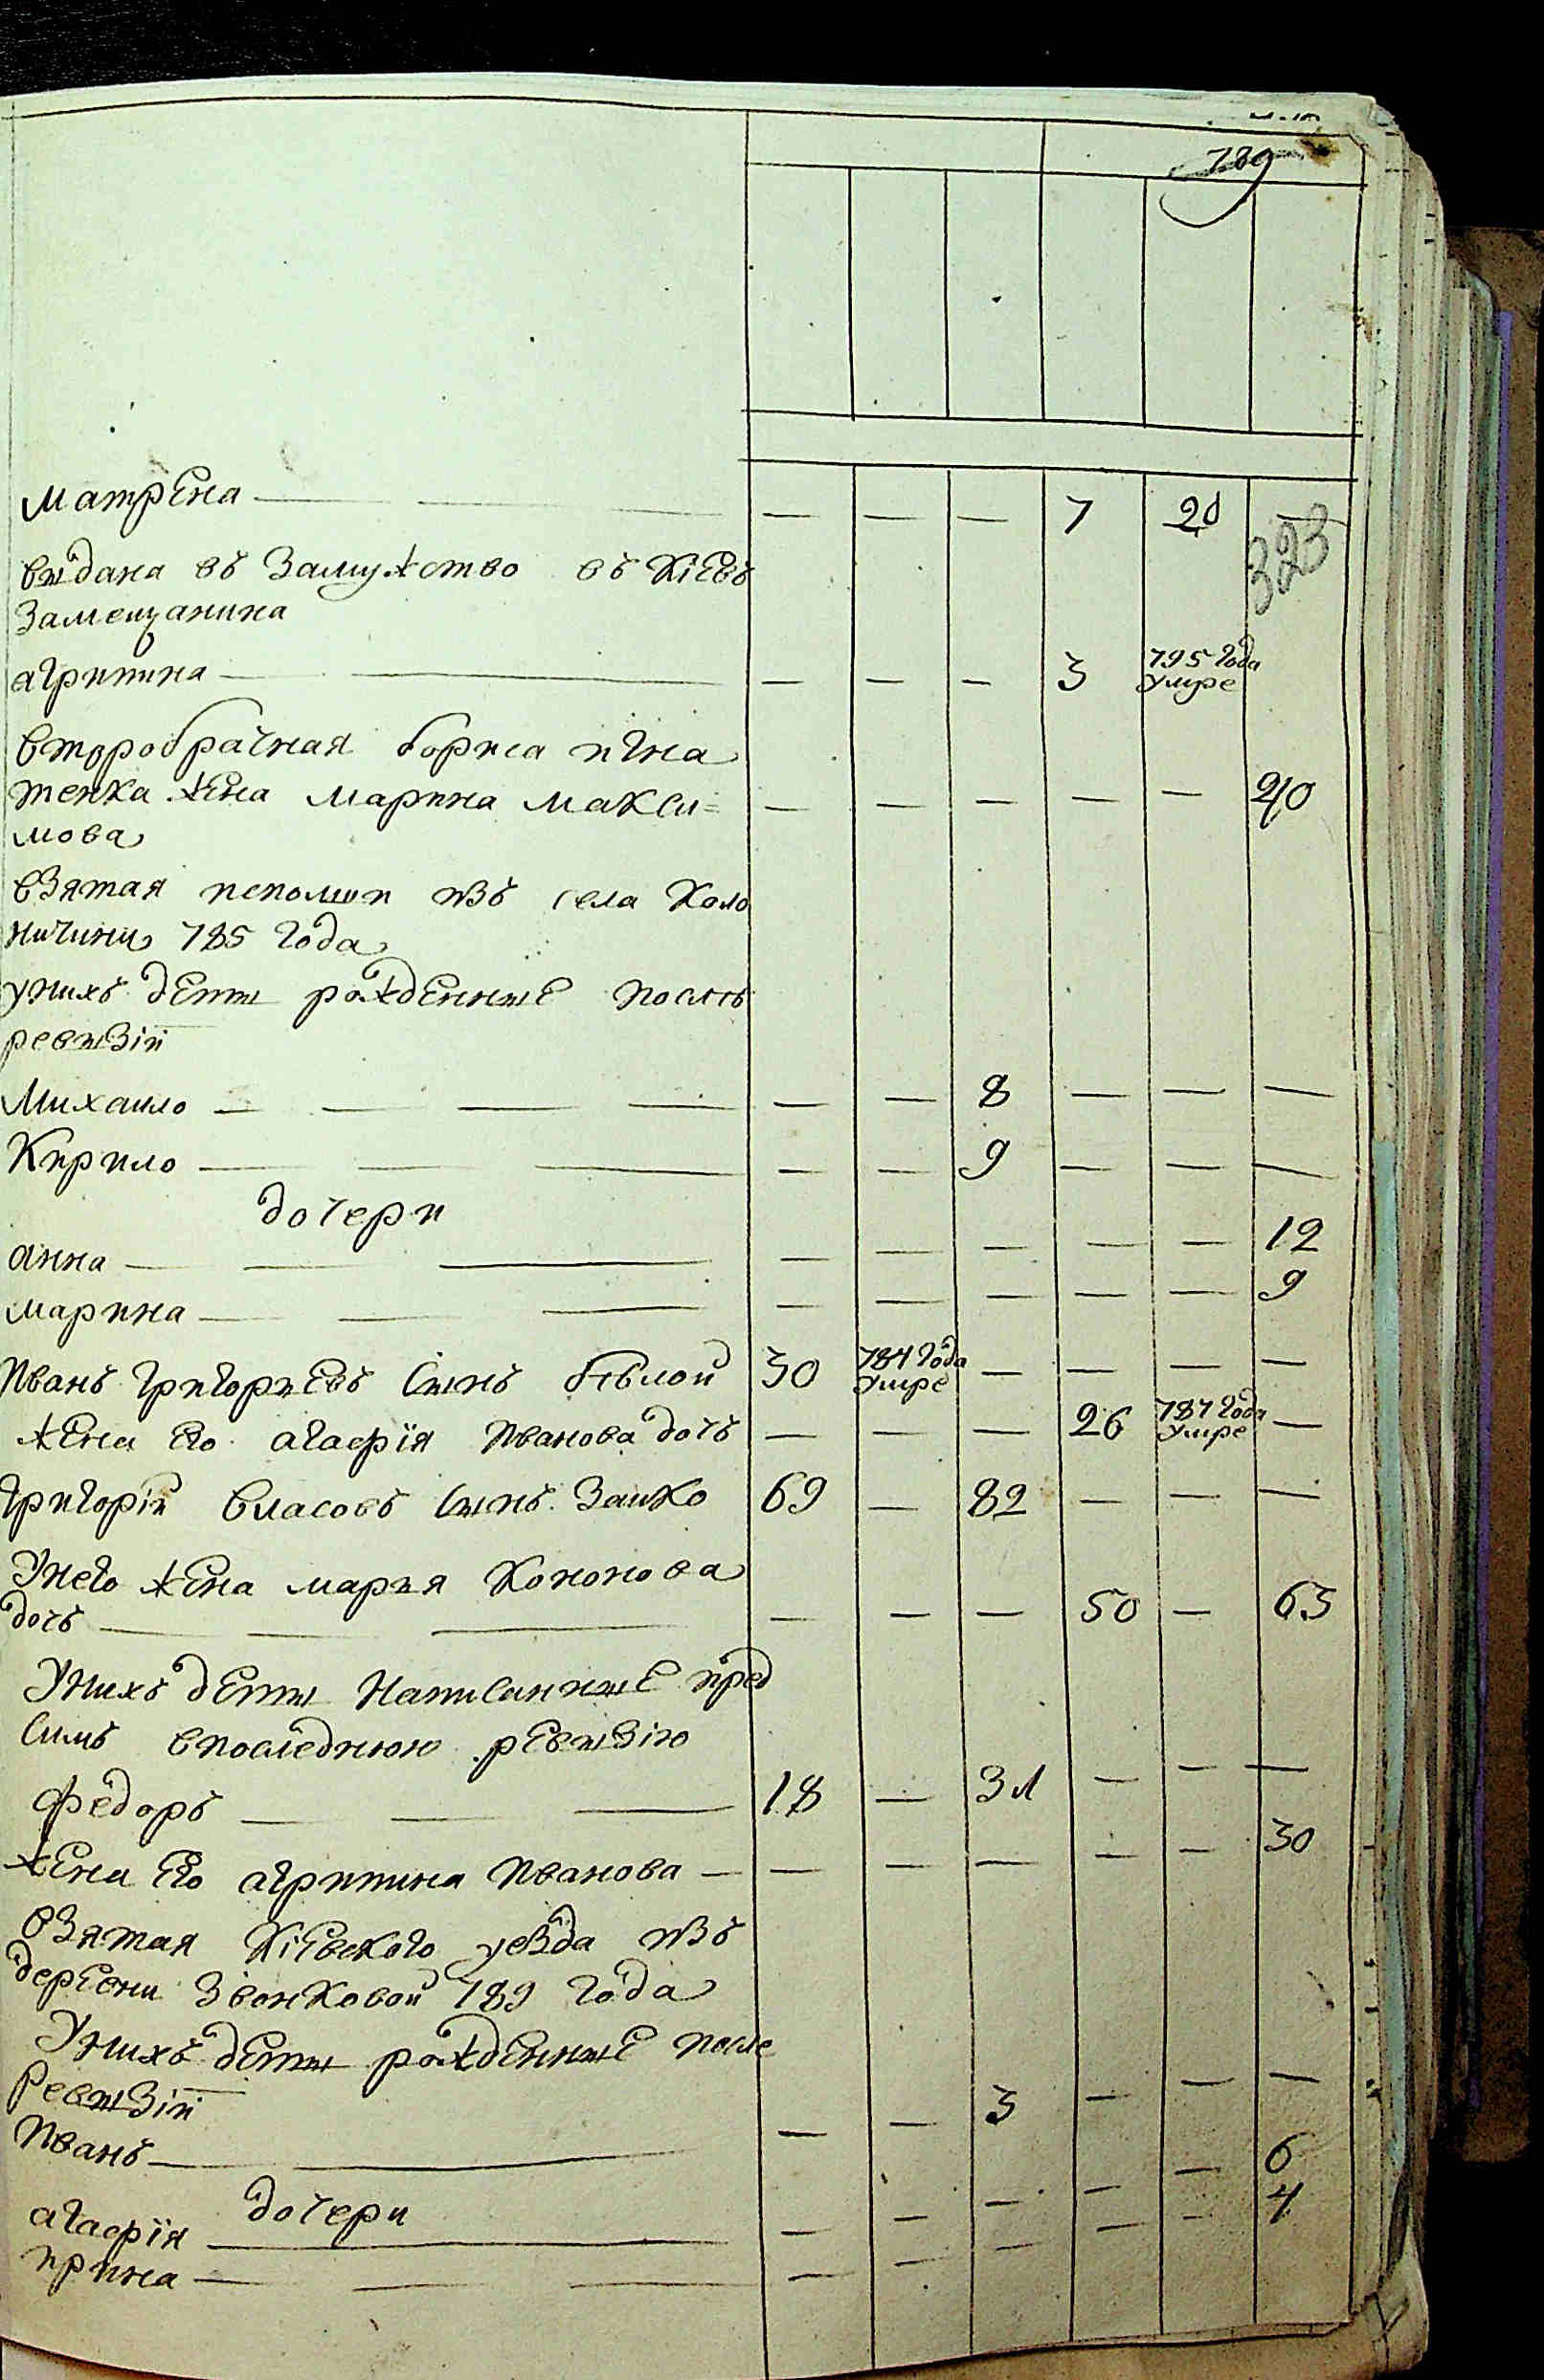 789
323
матрена — — — — — — 7 20 —
выдана въ замужство въ Кіевъ
замещанина
агрипина — — — — — 3 795 года умре
второбрачная бориса игна
тенка жена марина макси= — — — — — 40
мова
взятая изъ села Коло
ничини 785 года
унихъ дети рожденные послѣ
ревизіи
Михаило — — — — — — 8 — — —
Кирило — — — — — 9 — — —
дочери
анна — — — — — — — — 12
марина — — — — — — — — 9
Иванъ григориевъ сынъ бѣлой 30 784 года умре — — — —
жена его агафія Иванова дочь — — — 26 787 года умре —
григорій власовъ сынъ Заико 69 — 82 — — —
Унего жена мария Кононова
дочь — — — — — — 50 — 63
Унихъ дети написанные пред
симъ впоследнюю ревизію
федоръ — — — 18 — 31 — — —
жена его агрипина Иванова — — — — — — 30
взятая Кіевского уезда изъ
деревни Звонковой 789 года
Унихъ дети рожденные после
Ревизіи
Иванъ — — — — 3 — — —
дочери
агафія — — — — — — 6
ирина — — — — — — — — 4